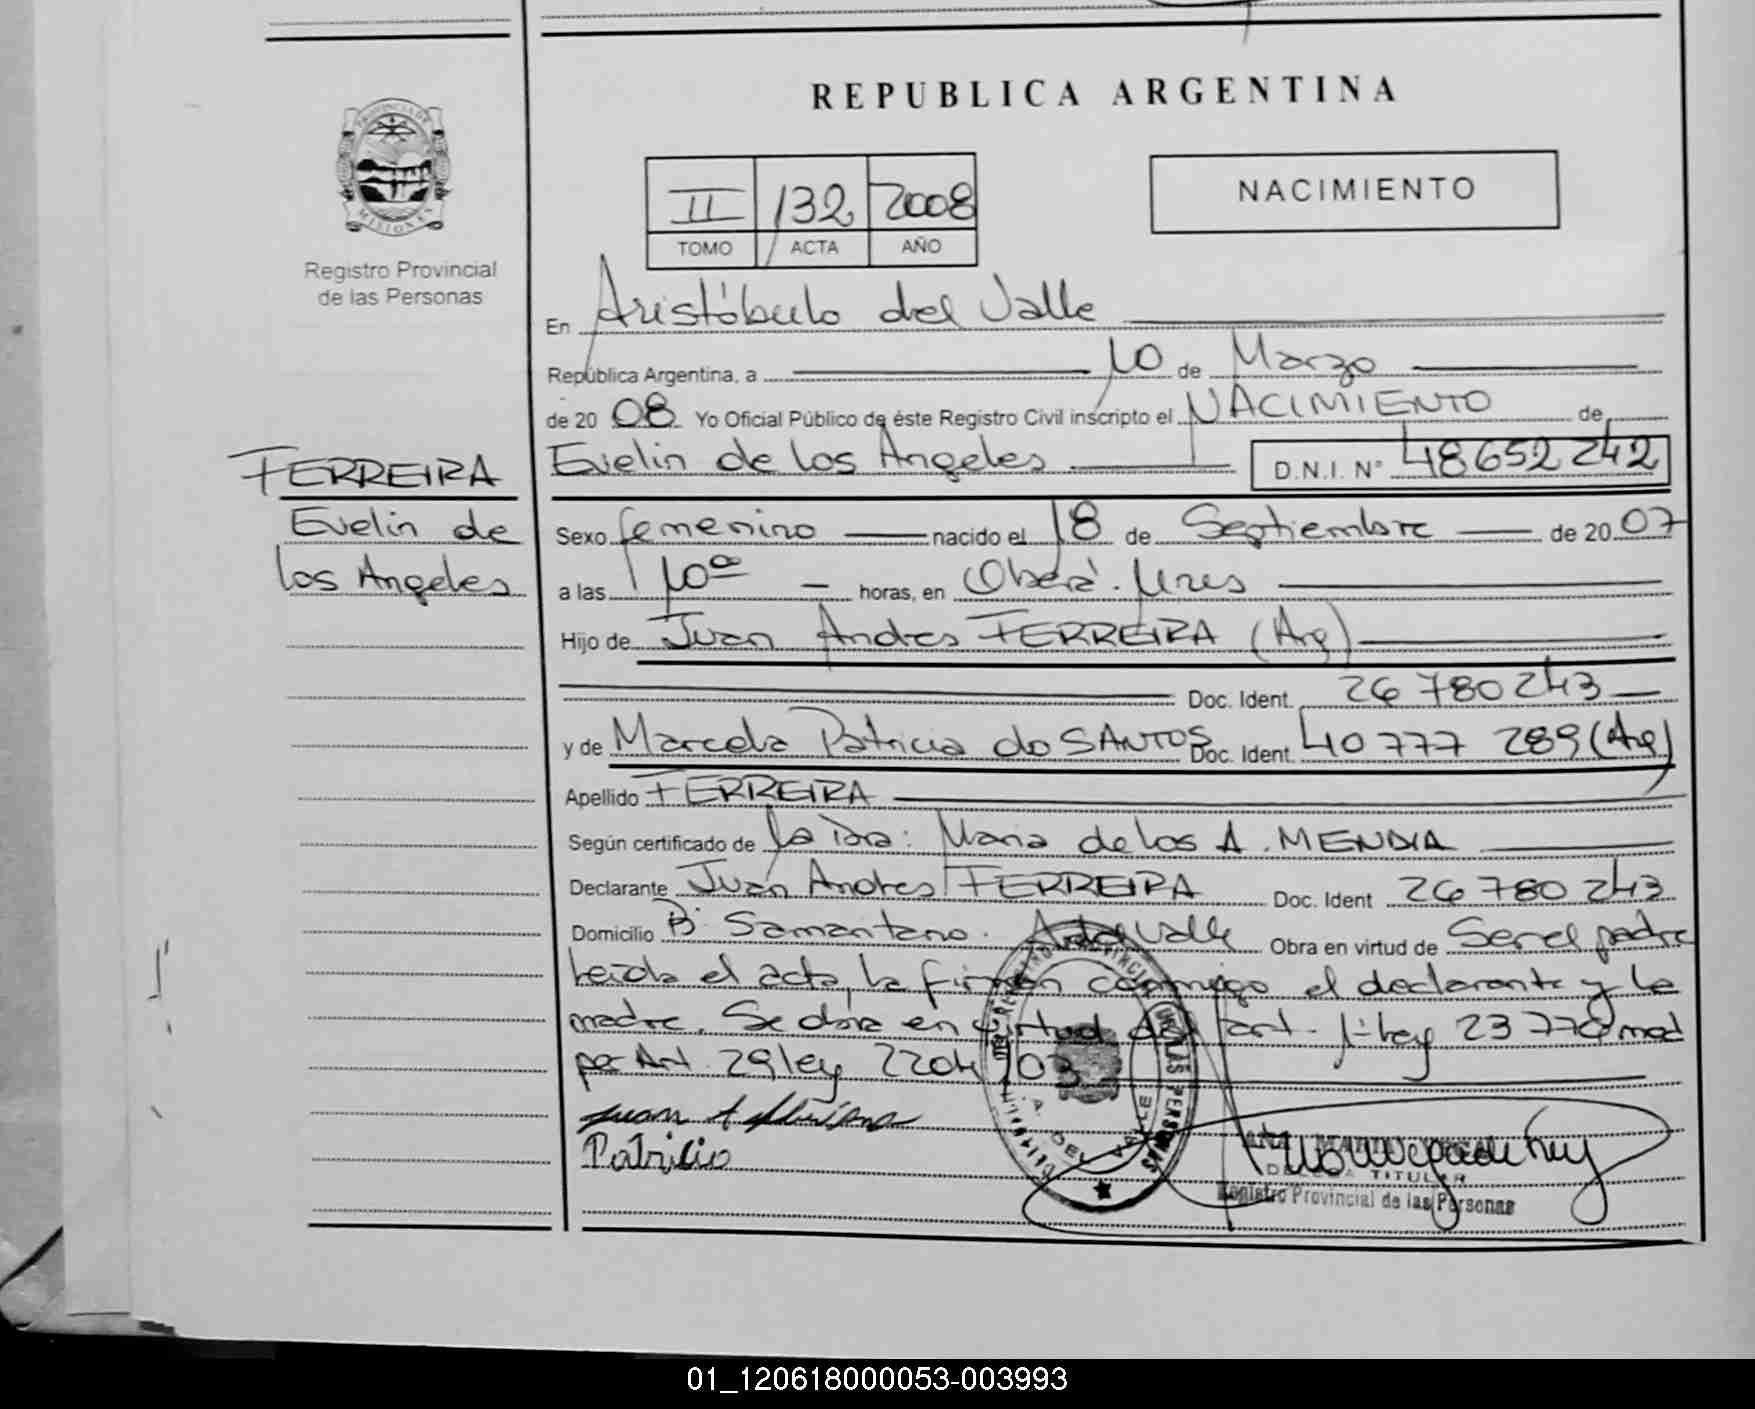 REPUBLICA ARGENTINA
PROVINCIA DE
MISIONES
Registro Provincial
de las Personas
II 132 2008
TOMO ACTA AÑO
NACIMIENTO
En Aristóbulo del Valle
República Argentina, a 10 de Marzo
de 2008 Yo Oficial Público de éste Registro Civil inscripto el NACIMIENTO de
Evelin de los Angeles D.N.I. N° 48652242
FERREIRA
Evelin de
los Angeles
Sexo femenino nacido el 18 de Septiembre de 2007
a las 10 horas, en Oberá. Mnes
Hijo de Juan Andres FERREIRA (Arg)
Doc. Ident. 26 780 243
y de Marcela Patricia do SANTOS Doc. Ident. 40 777 289 (Arg)
Apellido FERREIRA
Según certificado de la Dra: Maria de los A. MENDIA
Declarante Juan Andres FERREIRA Doc. Ident 26 780 243
Domicilio B° Samaniano. A del Valle Obra en virtud de Ser el padre
Leida el acta, la firman conmigo el declarante y la
madre. Se obra en virtud del art. 1° ley 23 776 mod
por Art. 29 ley 2204/03
Juan A
Patricia
TITULAR
Registro Provincial de las Personas
01_120618000053-003993